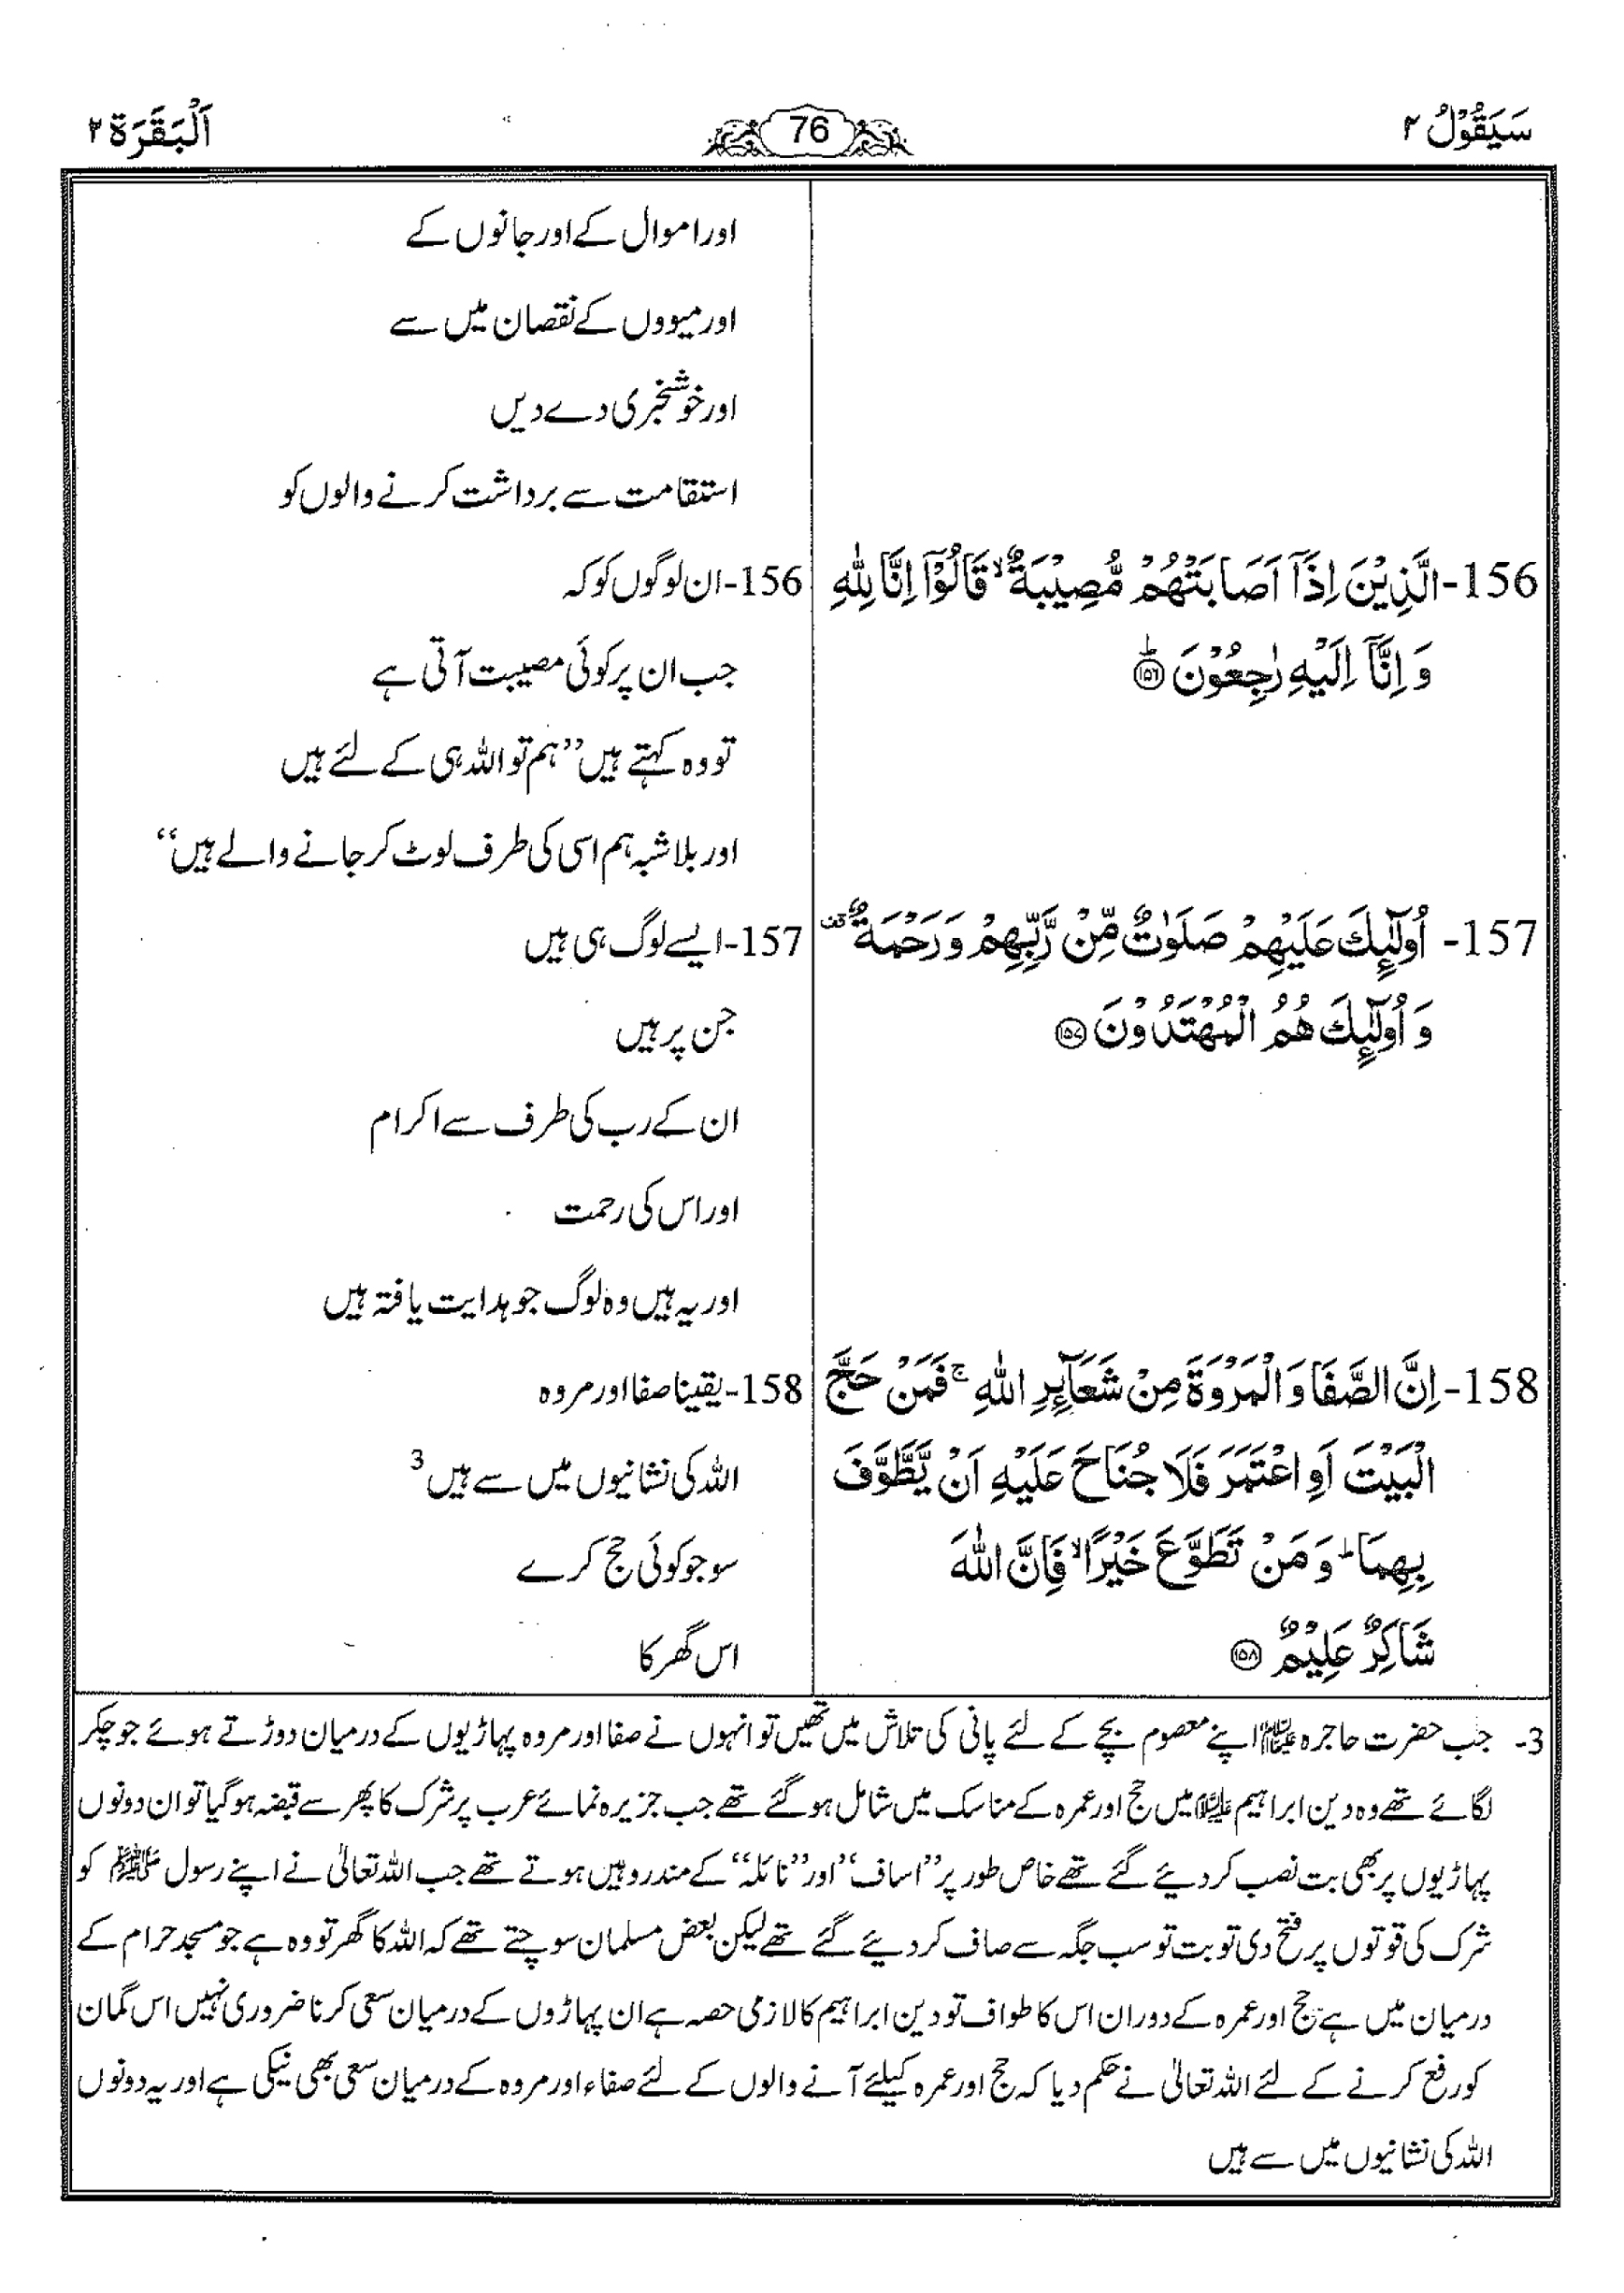 سَيَقُوْلُ ٢
76
اَلْبَقَرَة ٢
اور اموال کے اور جانوں کے
اور میووں کے نقصان میں سے
اور خوشخبری دے دیں
استقامت سے برداشت کرنے والوں کو
156- الَّذِيْنَ اِذَآ اَصَابَتْهُمْ مُّصِيْبَةٌ ۙ قَالُوْٓا اِنَّا لِلّٰهِ
وَ اِنَّآ اِلَيْهِ رٰجِعُوْنَ ؕ ١٥٦
156- ان لوگوں کو کہ
جب ان پر کوئی مصیبت آتی ہے
تو وہ کہتے ہیں ”ہم تو اللہ ہی کے لئے ہیں
اور بلا شبہ ہم اسی کی طرف لوٹ کر جانے والے ہیں“
157- اُولٰٓئِكَ عَلَيْهِمْ صَلَوٰتٌ مِّنْ رَّبِّهِمْ وَرَحْمَةٌ ۫
وَ اُولٰٓئِكَ هُمُ الْمُهْتَدُوْنَ ١٥٧
157- ایسے لوگ ہی ہیں
جن پر ہیں
ان کے رب کی طرف سے اکرام
اور اس کی رحمت
اور یہ ہیں وہ لوگ جو ہدایت یافتہ ہیں
158- اِنَّ الصَّفَا وَ الْمَرْوَةَ مِنْ شَعَآئِرِ اللّٰهِ ۚ فَمَنْ حَجَّ
الْبَيْتَ اَوِ اعْتَمَرَ فَلَا جُنَاحَ عَلَيْهِ اَنْ يَّطَّوَّفَ
بِهِمَا ؕ وَ مَنْ تَطَوَّعَ خَيْرًا ۙ فَاِنَّ اللّٰهَ
شَاكِرٌ عَلِيْمٌ ١٥٨
158- یقینا صفا اور مروہ
اللہ کی نشانیوں میں سے ہیں 3
سو جو کوئی حج کرے
اس گھر کا
3- جب حضرت حاجرہ علیہا السلام اپنے معصوم بچے کے لئے پانی کی تلاش میں تھیں تو انہوں نے صفا اور مروہ پہاڑیوں کے درمیان دوڑتے ہوئے جو چکر
لگائے تھے وہ دین ابراہیم علیہ السلام میں حج اور عمرہ کے مناسک میں شامل ہو گئے تھے جب جزیرہ نمائے عرب پر شرک کا پھر سے قبضہ ہو گیا تو ان دونوں
پہاڑیوں پر بھی بت نصب کر دیئے گئے تھے خاص طور پر ”اساف“ اور ”نائلہ“ کے مندر وہیں ہوتے تھے جب اللہ تعالیٰ نے اپنے رسول ﷺ کو
شرک کی قوتوں پر فتح دی تو بت تو سب جگہ سے صاف کر دیئے گئے تھے لیکن بعض مسلمان سوچتے تھے کہ اللہ کا گھر تو وہ ہے جو مسجد حرام کے
درمیان میں ہے حج اور عمرہ کے دوران اس کا طواف تو دین ابراہیم کا لازمی حصہ ہے ان پہاڑوں کے درمیان سعی کرنا ضروری نہیں اس گمان
کو رفع کرنے کے لئے اللہ تعالیٰ نے حکم دیا کہ حج اور عمرہ کیلئے آنے والوں کے لئے صفاء اور مروہ کے درمیان سعی بھی نیکی ہے اور یہ دونوں
اللہ کی نشانیوں میں سے ہیں